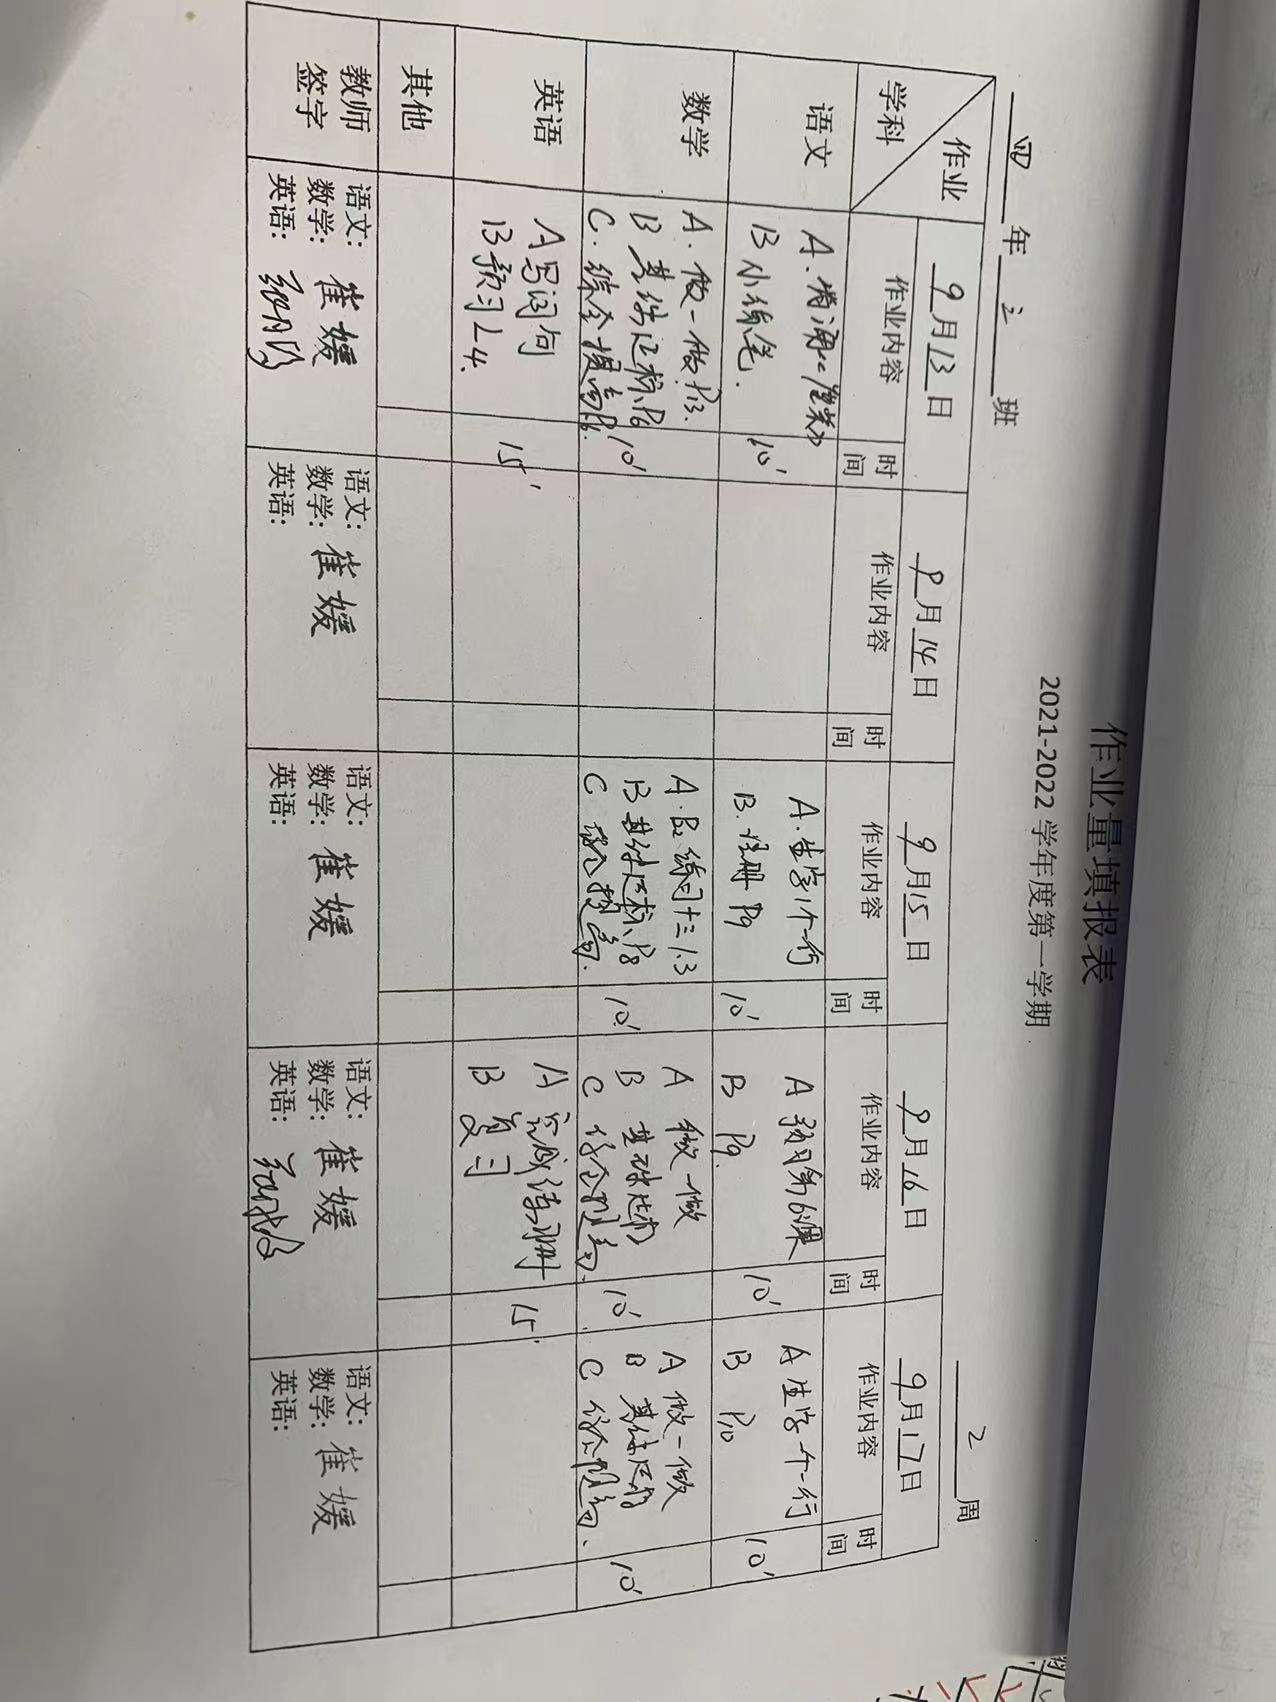 作业量填报表
2021-2022 学年度第一学期
四 年 三 班
2 周
作业
学科
9月13日
9月14日
9月15日
9月16日
9月17日
作业内容 时间
作业内容 时间
作业内容 时间
作业内容 时间
作业内容 时间
语文
A.
B 小练笔.
10'
A.生字1个一行
B. 练册 P9
10'
A 预习第6课
B P9.
10'
A 生字一个一行
B P10
10'
数学
A. 做一做 P13.
B 基础达标 P6
C. 综合提高P6.
10'
A. 练习十三 1.3
B 基础达标 P8
C 综合提高.
10'
A 做一做
B 基础达标
C 综合提高.
10'
A 做一做
B 基础达标
C 综合提高.
10'
英语
A 写词句
B 预习 L4.
15'
A 完成练习册
B 复习
15'
其他
教师
签字
语文:
数学: 崔媛
英语:
语文:
数学: 崔媛
英语:
语文:
数学: 崔媛
英语:
语文:
数学: 崔媛
英语:
语文:
数学: 崔媛
英语: